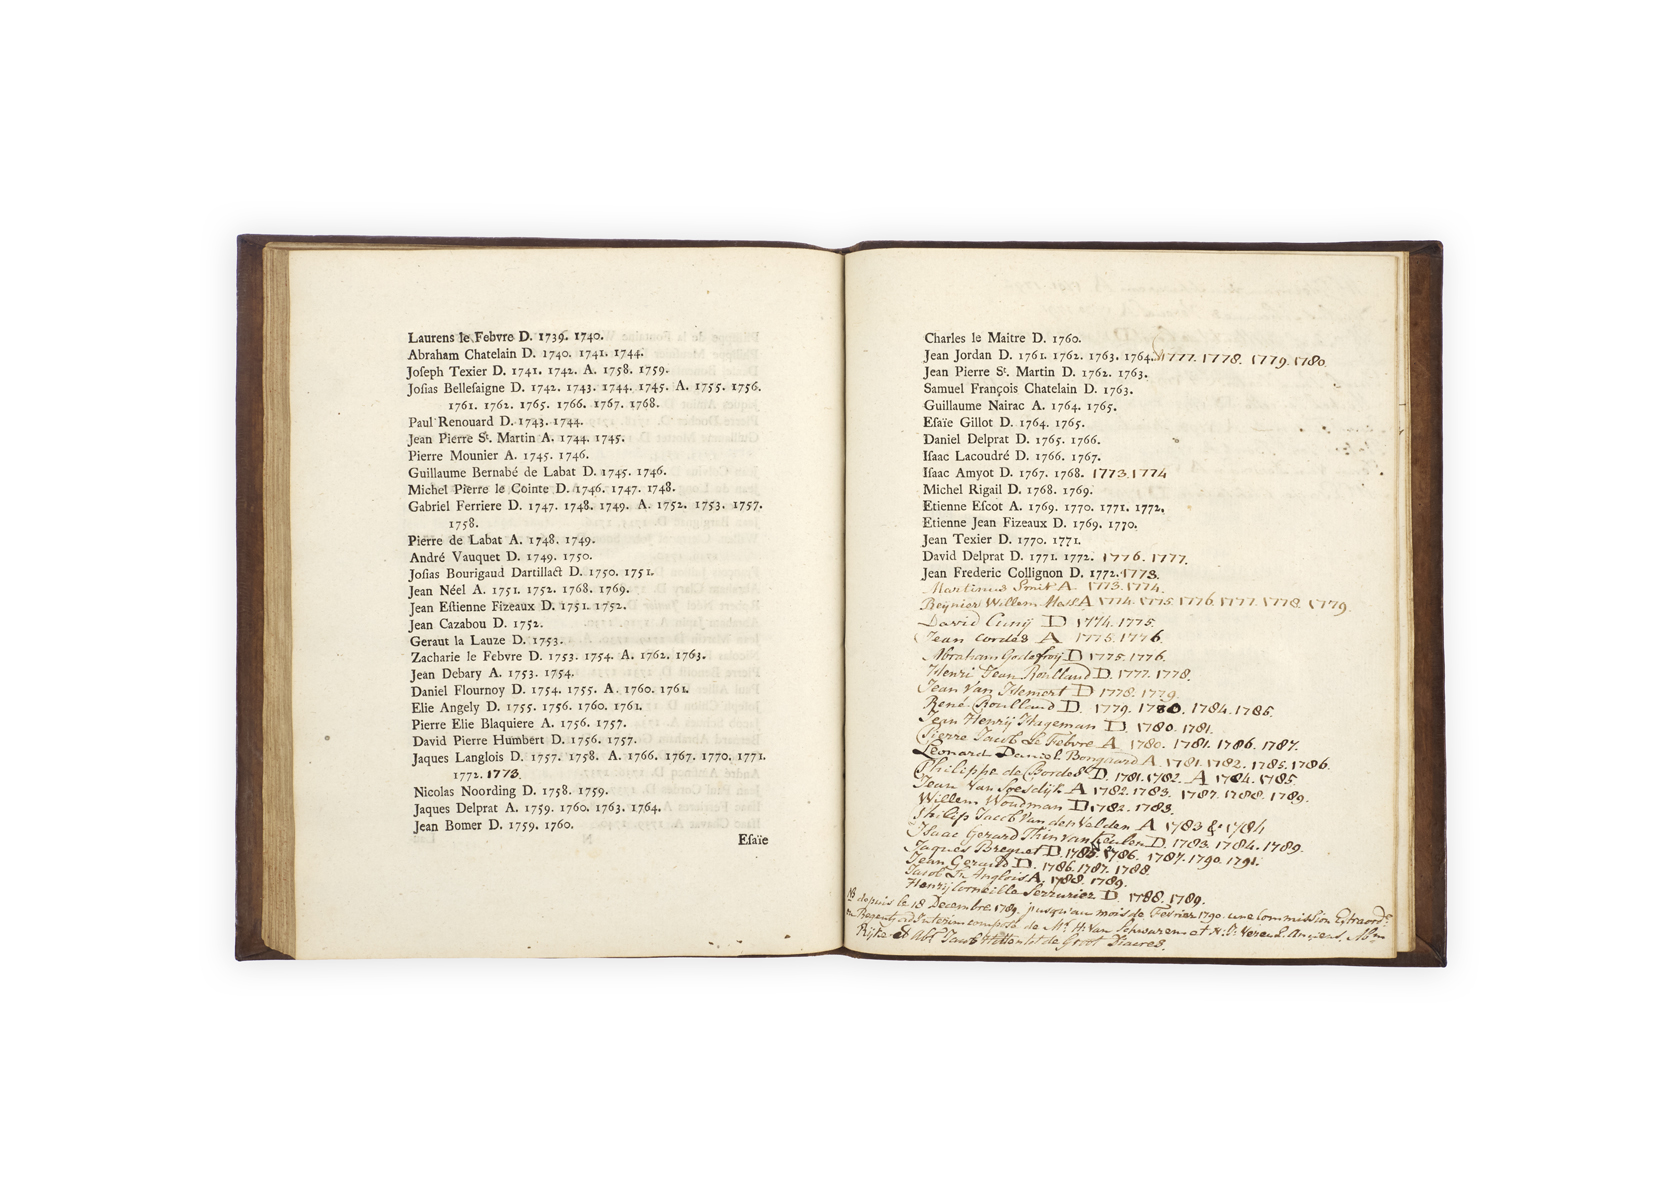 Laurens le Febvre D. 1739. 1740.
Abraham Chatelain D. 1740. 1741. 1744.
Joseph Texier D. 1741. 1742. A. 1758. 1759.
Josias Bellesaigne D. 1742. 1743. 1744. 1745. A. 1755. 1756.
1761. 1762. 1765. 1766. 1767. 1768.
Paul Renouard D. 1743. 1744.
Jean Pierre St. Martin A. 1744. 1745.
Pierre Mounier A. 1745. 1746.
Guillaume Bernabé de Labat D. 1745. 1746.
Michel Pierre le Cointe D. 1746. 1747. 1748.
Gabriel Ferriere D. 1747. 1748. 1749. A. 1752. 1753. 1757.
1758.
Pierre de Labat A. 1748. 1749.
André Vauquet D. 1749. 1750.
Josias Bourigaud Dartillact D. 1750. 1751.
Jean Néel A. 1751. 1752. 1768. 1769.
Jean Estienne Fizeaux D. 1751. 1752.
Jean Cazabou D. 1752.
Geraut la Lauze D. 1753.
Zacharie le Febvre D. 1753. 1754. A. 1762. 1763.
Jean Debary A. 1753. 1754.
Daniel Flournoy D. 1754. 1755. A. 1760. 1761.
Elie Angely D. 1755. 1756. 1760. 1761.
Pierre Elie Blaquiere A. 1756. 1757.
David Pierre Humbert D. 1756. 1757.
Jaques Langlois D. 1757. 1758. A. 1766. 1767. 1770. 1771.
1772. 1773.
Nicolas Noording D. 1758. 1759.
Jaques Delprat A. 1759. 1760. 1763. 1764.
Jean Bomer D. 1759. 1760.
Esaïe
Charles le Maitre D. 1760.
Jean Jordan D. 1761. 1762. 1763. 1764. 1777. 1778. 1779. 1780
Jean Pierre St. Martin D. 1762. 1763.
Samuel François Chatelain D. 1763.
Guillaume Nairac A. 1764. 1765.
Esaïe Gillot D. 1764. 1765.
Daniel Delprat D. 1765. 1766.
Isaac Lacoudré D. 1766. 1767.
Isaac Amyot D. 1767. 1768. 1773. 1774
Michel Rigail D. 1768. 1769.
Etienne Escot A. 1769. 1770. 1771. 1772.
Etienne Jean Fizeaux D. 1769. 1770.
Jean Texier D. 1770. 1771.
David Delprat D. 1771. 1772. 1776. 1777.
Jean Frederic Collignon D. 1772. 1773.
Martinus Smit A. 1773. 1774.
Reijnier Willem Mess A 1774. 1775. 1776. 1777. 1778. 1779.
David Cunij D 1774. 1775.
Jean Cordes A 1775. 1776
Abraham Godefroij D 1775. 1776.
Henri Jean Roulland D. 1777. 1778.
Jean Van Hemert D 1778. 1779.
René Roulland D. 1779. 1780. 1784. 1785.
Jean Henrij Hageman D. 1780. 1781.
Pierre Jacob Le Febvre A 1780. 1781. 1786. 1787.
Leonard Daniel Bongaard A 1781. 1782. 1785. 1786.
Philippe de Bordes D. 1781. 1782. A 1784. 1785.
Jean Van Soesdijk A 1782. 1783. 1787. 1788. 1789.
Willem Woudman D 1782. 1783.
Philip Jacob Van den Velden A 1783 & 1784
Isaac Gerard Thin van Keulen D. 1783. 1784. 1789.
Jaques Breguet D. 1785 1786. 1787. 1790. 1791.
Jean Gerard D. 1786. 1787. 1788.
Jacob L'Anglois A. 1788. 1789.
Henrij Corneille Serrurier D. 1788. 1789.
NB depuis le 18 Decembre 1789. jusqu'au mois de Fevrier 1790. une Commission Extraord.re
Regents ad Interim composé de Mr. H. Van Schwaren et Anciens,
Rijke et Abr. Jacob de Groot Diacres.